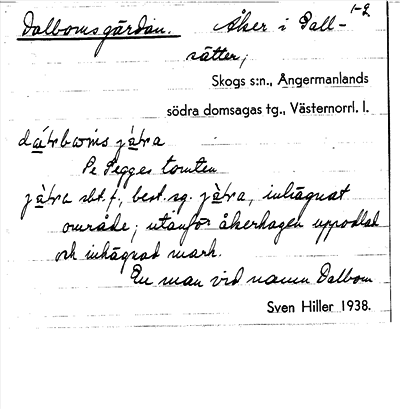 Dalbomsgärdan. Åker i Pall- 1-2
sätter;
Skogs s:n., Ångermanlands
södra domsagas tg., Västernorrl. l.
jä̀ra
Pe Pegges tomten
jä̀ra sbt. f., best. sg. jä̀ra, inhägnat
område; utanför åkerhagen uppodlad
och inhägnad mark.
En man vid namn Dalbom
Sven Hiller 1938.